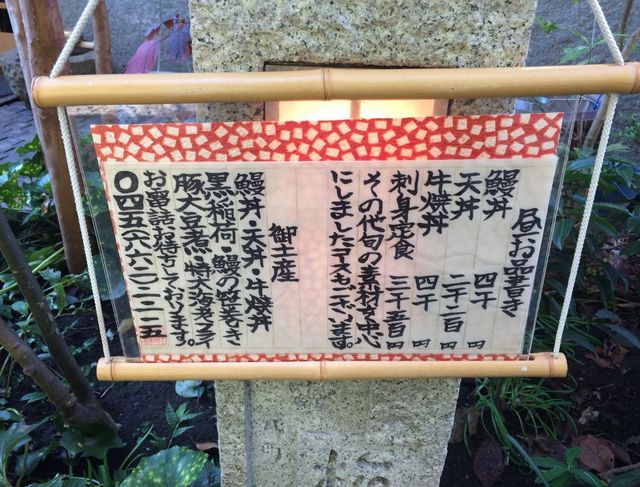 昼お品書き
鰻丼 四千円
天丼 二千二百円
牛焼丼 四千円
刺身定食 三千五百円
その他旬の素材を中心
にしましたコースもございます。
御土産
鰻丼・天丼・牛焼丼
黒稲荷・鰻の笹むさ
豚大豆煮・特大海老フライ
お電話お待ちしております。
〇四五（六六二）二二一五